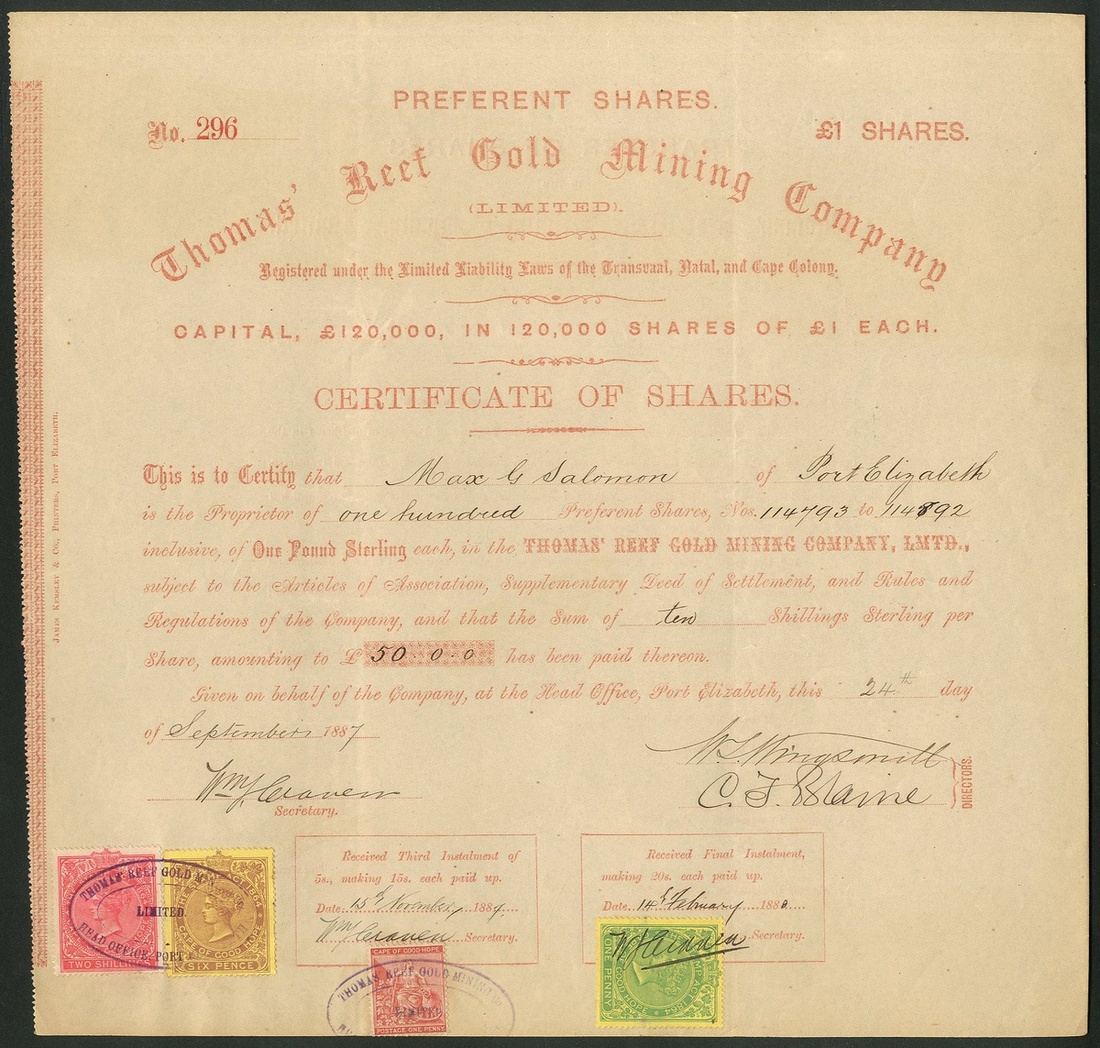 PREFERENT SHARES.
No. 296
£1 SHARES.
Thomas' Reef Gold Mining Company
(LIMITED).
Registered under the Limited Liability Laws of the Transvaal, Natal, and Cape Colony.
CAPITAL, £120,000, IN 120,000 SHARES OF £1 EACH.
CERTIFICATE OF SHARES.
This is to Certify that Max G Salomon of Port Elizabeth
is the Proprietor of one hundred Preferent Shares, Nos. 114793 to 114892
inclusive, of One Pound Sterling each, in the THOMAS' REEF GOLD MINING COMPANY, LMTD.,
subject to the Articles of Association, Supplementary Deed of Settlement, and Rules and
Regulations of the Company, and that the Sum of ten Shillings Sterling per
Share, amounting to £ 50-0-0 has been paid thereon.
Given on behalf of the Company, at the Head Office, Port Elizabeth, this 24th day
of September 1887
C. F. Blaine
DIRECTORS.
Wm J Craven
Secretary.
JAMES KEMSLEY & CO., PRINTERS, PORT ELIZABETH.
Received Third Instalment of
5s., making 15s. each paid up.
Date 15th November 188
Wm J Craven Secretary.
Received Final Instalment,
making 20s. each paid up.
Date 14th February 188
Secretary.
THOMAS' REEF GOLD
LIMITED.
HEAD OFFICE PORT
TWO SHILLINGS
CAPE OF GOOD HOPE
SIX PENCE
CAPE OF GOOD HOPE
THOMAS' REEF GOLD MINING CO
LIMITED
POSTAGE ONE PENNY
ONE PENNY
GOOD HOPE